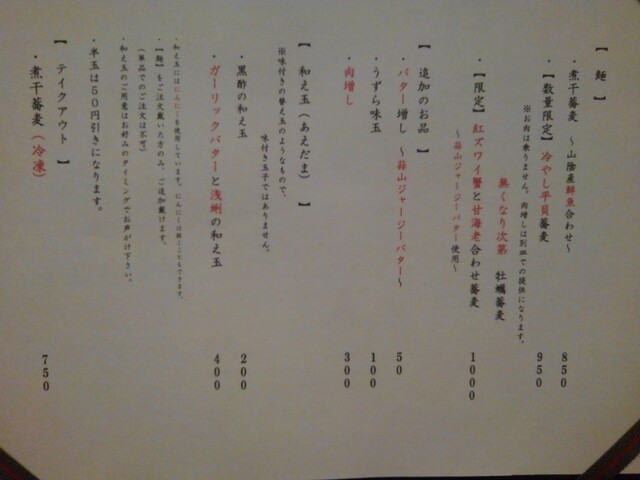 【 麺 】
・煮干蕎麦 ～山陰産鮮魚合わせ～ 850
・【数量限定】冷やし平貝蕎麦 950
※お肉は乗りません。肉増しは別皿での提供になります。
無くなり次第 牡蠣蕎麦
・【限定】紅ズワイ蟹と甘海老合わせ蕎麦 1000
～蒜山ジャージーバター使用～
【 追加のお品 】
・バター増し ～蒜山ジャージーバター～ 50
・うずら味玉 100
・肉増し 300
【 和え玉（あえだま） 】
※味付きの替え玉のようなもので、
味付き玉子ではありません。
・黒酢の和え玉 200
・ガーリックバターと浅蜊の和え玉 400
・和え玉にはにんにくを使用しています。にんにくは抜くこともできます。
・【麺】をご注文戴いた方のみ、ご追加戴けます。
（単品でのご注文は不可）
・和え玉のご用意はお好みのタイミングでお声がけ下さい。
・半玉は50円引きになります。
【 テイクアウト 】
・煮干蕎麦（冷凍） 750